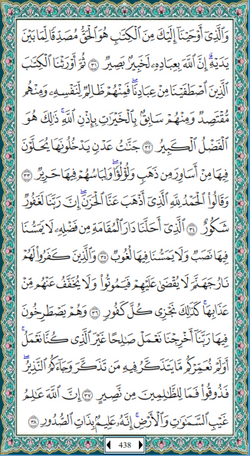 وَٱلَّذِىٓ أَوْحَيْنَآ إِلَيْكَ مِنَ ٱلْكِتَٰبِ هُوَ ٱلْحَقُّ مُصَدِّقًا لِّمَا بَيْنَ
يَدَيْهِ إِنَّ ٱللَّهَ بِعِبَادِهِۦ لَخَبِيرٌۢ بَصِيرٌ ٣١ ثُمَّ أَوْرَثْنَا ٱلْكِتَٰبَ
ٱلَّذِينَ ٱصْطَفَيْنَا مِنْ عِبَادِنَا فَمِنْهُمْ ظَالِمٌ لِّنَفْسِهِۦ وَمِنْهُم
مُّقْتَصِدٌ وَمِنْهُمْ سَابِقٌۢ بِٱلْخَيْرَٰتِ بِإِذْنِ ٱللَّهِ ذَٰلِكَ هُوَ
ٱلْفَضْلُ ٱلْكَبِيرُ ٣٢ جَنَّٰتُ عَدْنٍ يَدْخُلُونَهَا يُحَلَّوْنَ
فِيهَا مِنْ أَسَاوِرَ مِن ذَهَبٍ وَلُؤْلُؤًا وَلِبَاسُهُمْ فِيهَا حَرِيرٌ ٣٣
وَقَالُوا۟ ٱلْحَمْدُ لِلَّهِ ٱلَّذِىٓ أَذْهَبَ عَنَّا ٱلْحَزَنَ إِنَّ رَبَّنَا لَغَفُورٌ
شَكُورٌ ٣٤ ٱلَّذِىٓ أَحَلَّنَا دَارَ ٱلْمُقَامَةِ مِن فَضْلِهِۦ لَا يَمَسُّنَا
فِيهَا نَصَبٌ وَلَا يَمَسُّنَا فِيهَا لُغُوبٌ ٣٥ وَٱلَّذِينَ كَفَرُوا۟ لَهُمْ
نَارُ جَهَنَّمَ لَا يُقْضَىٰ عَلَيْهِمْ فَيَمُوتُوا۟ وَلَا يُخَفَّفُ عَنْهُم مِّنْ
عَذَابِهَا كَذَٰلِكَ نَجْزِى كُلَّ كَفُورٍ ٣٦ وَهُمْ يَصْطَرِخُونَ
فِيهَا رَبَّنَآ أَخْرِجْنَا نَعْمَلْ صَٰلِحًا غَيْرَ ٱلَّذِى كُنَّا نَعْمَلُ
أَوَلَمْ نُعَمِّرْكُم مَّا يَتَذَكَّرُ فِيهِ مَن تَذَكَّرَ وَجَآءَكُمُ ٱلنَّذِيرُ
فَذُوقُوا۟ فَمَا لِلظَّٰلِمِينَ مِن نَّصِيرٍ ٣٧ إِنَّ ٱللَّهَ عَٰلِمُ
غَيْبِ ٱلسَّمَٰوَٰتِ وَٱلْأَرْضِ إِنَّهُۥ عَلِيمٌۢ بِذَاتِ ٱلصُّدُورِ ٣٨
438